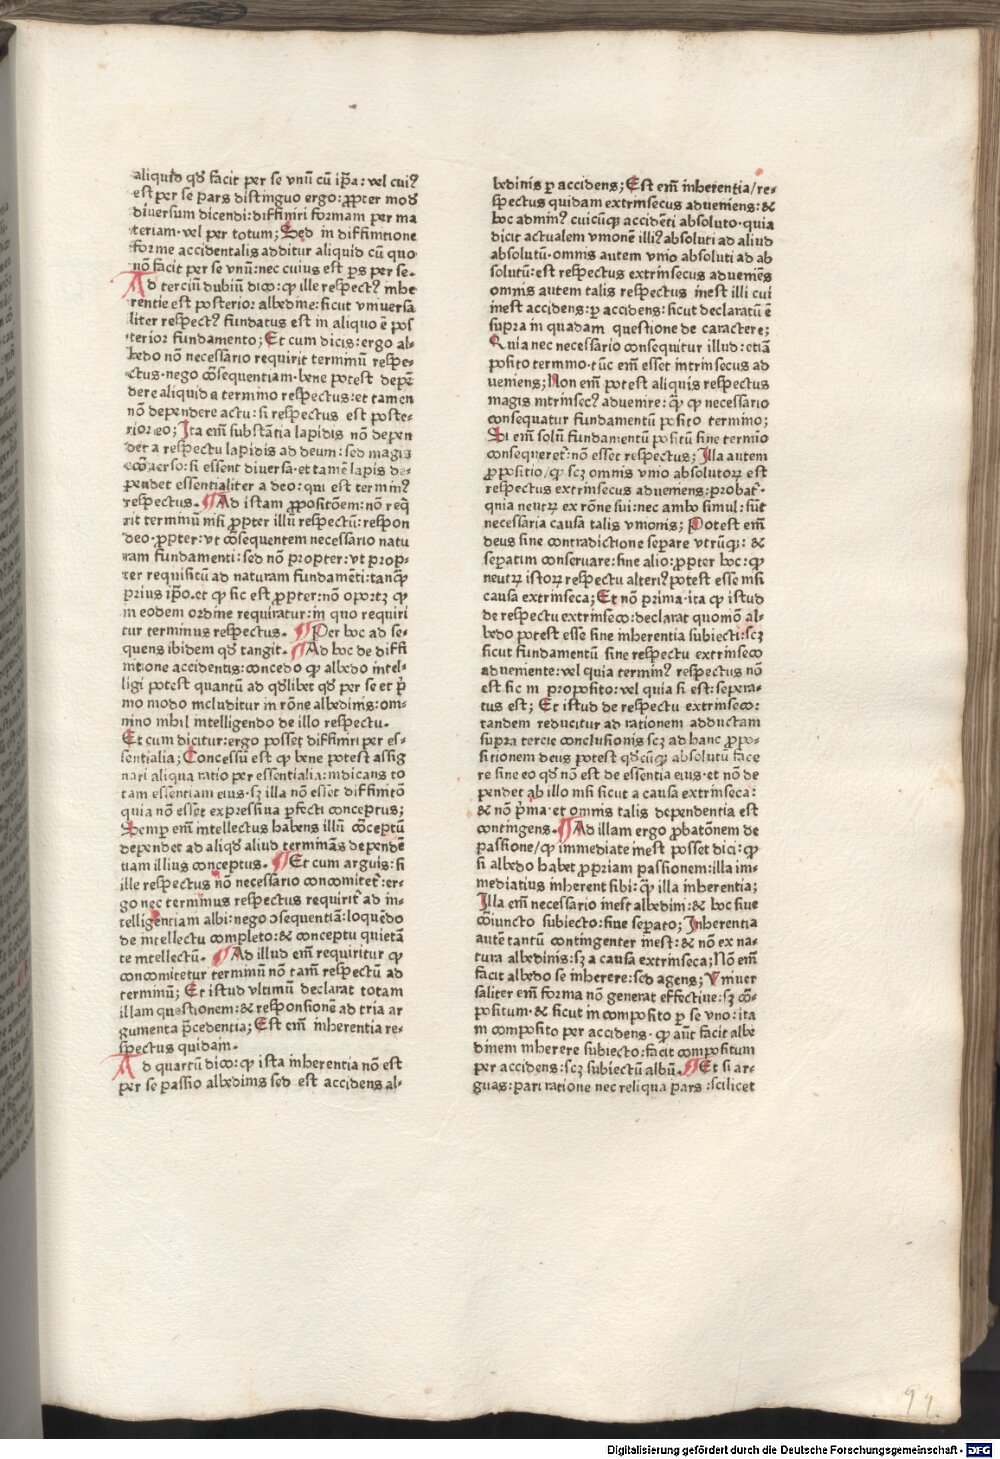 aliquid qđ facit per se vnū cū ip̄a: vel cuiꝰ
est per se pars distinguo ergo: ꝓpter mod
diuersum dicendi: diffiniri formam per ma
teriam· vel per totum; Sed in diffinitione
forme accidentalis additur aliquid cū quo
nō facit per se vnū: nec cuius est ꝑs per se.
Ad terciū dubiū dico: ꝙ ille respectꝰ inhe
rentie est posterior albedine: sicut vniuersa
liter respectꝰ fundatus est in aliquo ē pos
terior fundamento; Et cum dicis: ergo al-
bedo nō necessario requirit terminū respe-
ctus· nego cōsequentiam· bene potest depē
dere aliquid a termino respectus: et tamen
nō dependere actu: si respectus est poste-
rior eo; Ita em̄ substātia lapidis nō depen
det a respectu lapidis ad deum: sed magis
ecōuerso: si essent diuersa· et tamē lapis de-
pendet essentialiter a deo: qui est terminꝰ
respectus. ¶ Ad istam ꝓpositōem: non req̄
rit terminū nisi ꝓpter illū respectū: respon
deo· ꝓpter: vt cōsequentem necessario natu
ram fundamenti: sed nō propter: vt prop-
ter requisitū ad naturam fundamēti: tanq̄
prius ip̄o. et ꝙ sic est ꝓpter: nō oportꝫ ꝙ
in eodem ordine requiratur: in quo requiri
tur terminus respectus. ¶ Per hoc ad se-
quens ibidem qđ tangit. ¶ Ad hoc de diffi
nitione accidentis: concedo ꝙ albedo intel-
ligi potest quantū ad qđlibet qđ per se et p̄
mo modo includitur in rōne albedinis: om-
nino nihil intelligendo de illo respectu.
Et cum dicitur: ergo posset diffiniri per es-
sentialia; Concessū est ꝙ bene potest assig
nari aliqua ratio per essentialia: indicans to
tam essentiam eius· sꝫ illa nō esset diffinitō
quia nō esset expressiua ꝑfecti conceptus;
Semper em̄ intellectus habens illū cōceptū
dependet ad aliqđ aliud terminās dependē
tiam illius conceptus. ¶ Et cum arguis: si
ille respectus nō necessario concomitet̄: er-
go nec terminus respectus requirit̄ ad in-
telligentiam albi: nego ↄsequentiā: loquēdo
de intellectu completo: & conceptu quietā
te intellectū. ¶ Ad illud em̄ requiritur ꝙ
concomitetur terminū nō tam̄ respectū ad
terminū; Et istud vltimū declarat totam
illam questionem: & responsionē ad tria ar
gumenta p̄cedentia; Est em̄ inherentia re-
spectus quidam.
Ad quartū dico: ꝙ ista inherentia nō est
per se passio albedinis sed est accidens al-
bedinis ꝑ accidens; Est em̄ inherentia/re-
spectus quidam extrinsecus adueniens: &
hoc ad minꝰ cuicūqꝫ accidēti absoluto· quia
dicit actualem vnionē illiꝰ absoluti ad aliud
absolutū· omnis autem vnio absoluti ad ab
solutū: est respectus extrinsecus adueniēs
omnis autem talis respectus inest illi cui
inest accidens: ꝑ accidens: sicut declaratū ē
supra in quadam questione de caractere;
Quia nec necessario consequitur illud: etiā
posito termino· tūc em̄ esset intrinsecus ad
ueniens; Non em̄ potest aliquis respectus
magis intrinsecꝰ aduenire: q̄ ꝙ necessario
consequatur fundamentū posito termino;
Si em̄ solū fundamentū positū sine termīo
consequeret̄: nō esset respectus; Illa autem
ꝓpositio/ꝙ scꝫ omnis vnio absolutoꝝ est
respectus extrinsecus adueniens: probat̄·
quia neutrꝝ ex rōne sui: nec ambo simul: sūt
necessaria causa talis vnionis; Potest em̄
deus sine contradictione seꝑare vtrūqꝫ: &
seꝑatim conseruare: sine alio: ꝓpter hoc: ꝙ
neutrꝝ istoꝝ respectu alteriꝰ potest esse nisi
causa extrinseca; Et nō prima· ita ꝙ istud
de respectu extrinseco: declarat quomō al-
bedo potest esse sine inherentia subiecti: scꝫ
sicut fundamentū sine respectu extrinseco
adueniente: vel quia terminꝰ respectus nō
est sic in proposito: vel quia si est: sepera-
tus est; Et istud de respectu extrinseco:
tandem reducitur ad rationem adductam
supra tercie conclusionis scꝫ ad hanc ꝓpo-
sitionem deus potest qđcūqꝫ absolutū face
re sine eo qđ nō est de essentia eius· et nō de
pendet ab illo nisi sicut a causa extrinseca:
& nō p̄ma· et omnis talis dependentia est
contingens. ¶ Ad illam ergo ꝓbatōnem de
passione/ꝙ immediate inest posset dici: ꝙ
si albedo habet ꝓpriam passionem: illa im-
mediatius inherent sibi: q̄ illa inherentia;
Illa em̄ necessario inest albedini: & hoc siue
cōiuncto subiecto: siue seꝑato; Inherentia
autē tantū contingenter inest: & nō ex na-
tura albedinis: sꝫ a causa extrinseca; Nō em̄
facit albedo se inherere: sed agens; Vniuer
saliter em̄ forma nō generat effectiue: sꝫ cō-
positum· & sicut in composito ꝑ se vno: ita
in composito per accidens· ꝙ aūt facit albe
dinem inherere subiecto: facit compositum
per accidens: scꝫ subiectū albū. ¶ Et si ar-
guas: pari ratione nec reliqua pars: scilicet
Digitalisierung gefördert durch die Deutsche Forschungsgemeinschaft - DFG